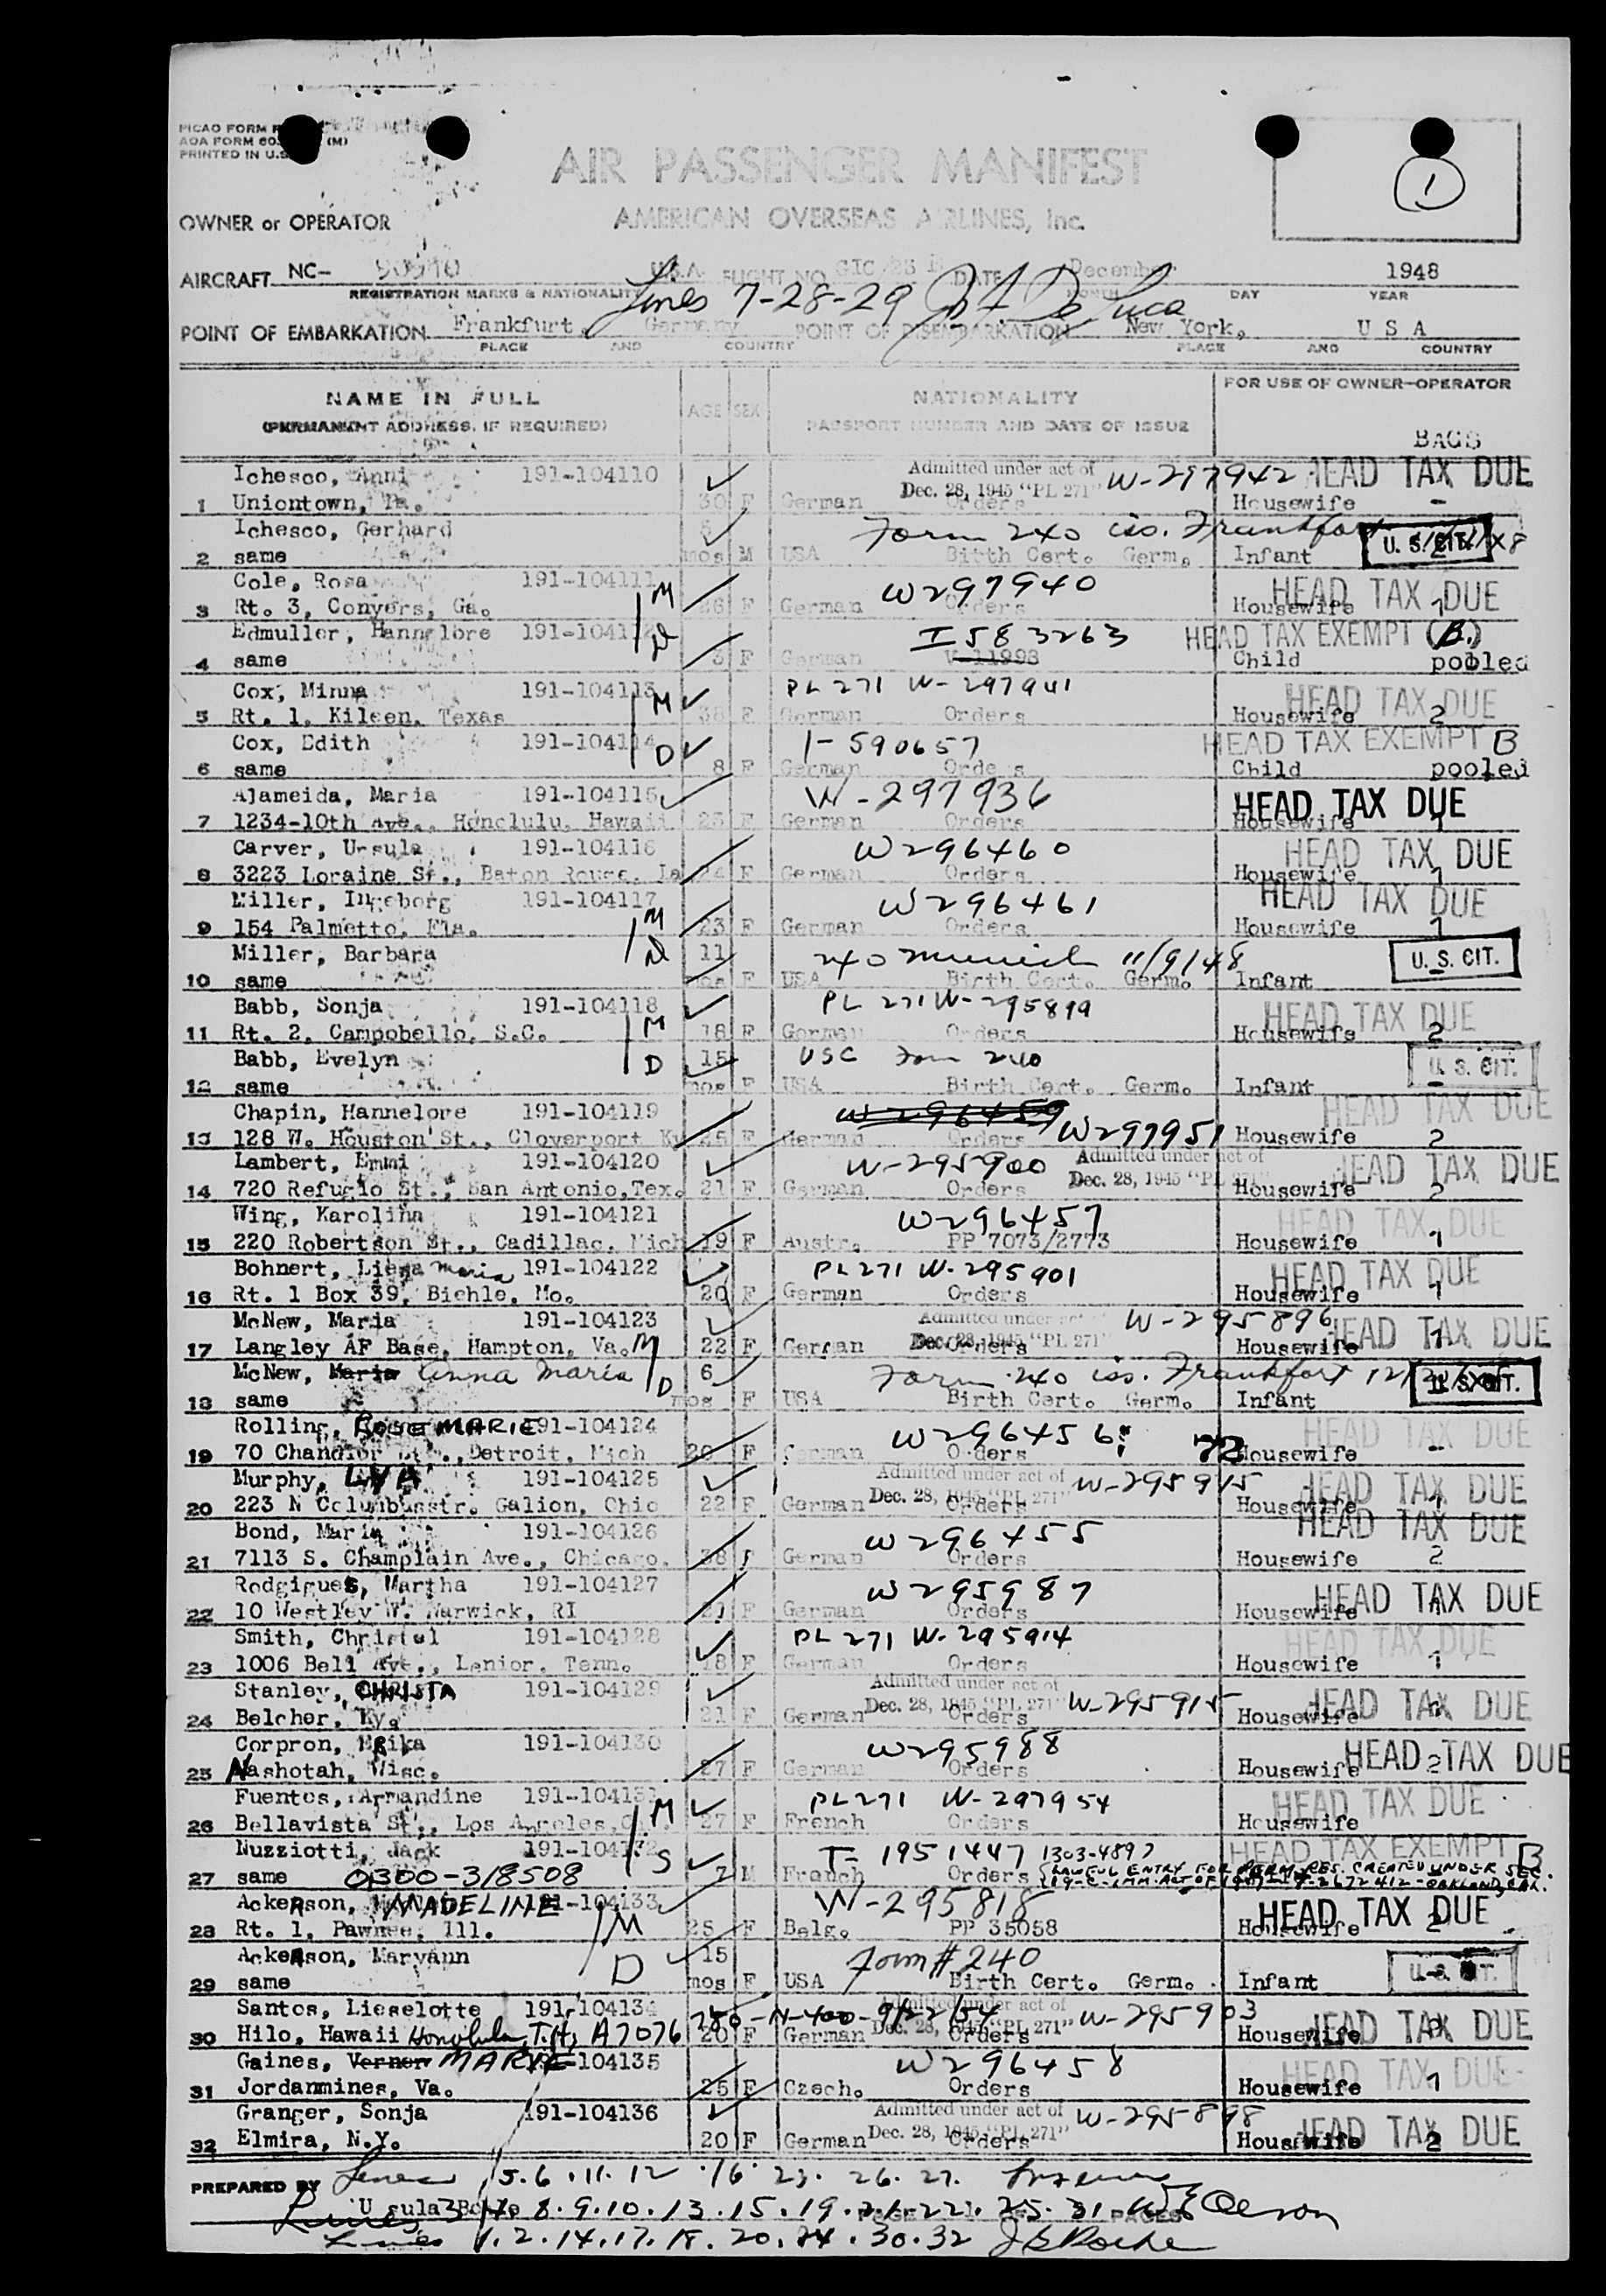 PICAO FORM
AOA FORM (M)
PRINTED IN U.S.
1
AIR PASSENGER MANIFEST
OWNER or OPERATOR AMERICAN OVERSEAS AIRLINES, Inc.
AIRCRAFT NC- 90910 USA FLIGHT NO. DATE December 1948
REGISTRATION MARKS & NATIONALITY MONTH DAY YEAR
Lines 7-28-29 De Luca
POINT OF EMBARKATION Frankfurt, Germany POINT OF DISEMBARKATION New York, U S A
PLACE AND COUNTRY PLACE AND COUNTRY
NAME IN FULL AGE SEX NATIONALITY FOR USE OF OWNER-OPERATOR
(PERMANENT ADDRESS, IF REQUIRED) PASSPORT NUMBER AND DATE OF ISSUE
BAGS
Ichesco, Anni 191-104110 Admitted under act of W-297942 HEAD TAX DUE
1 Uniontown, Pa. 30 F German Dec. 28, 1945 "PL 271" Orders Housewife -
Ichesco, Gerhard 5 Form 240 iss. Frankfort U. S. CIT.
2 same mos M USA Birth Cert. Germ. Infant
Cole, Rosa 191-104111 M W297940 HEAD TAX DUE
3 Rt. 3, Conyers, Ga. 26 F German Orders Housewife 1
Edmuller, Hannelore 191-104112 D I 583263 HEAD TAX EXEMPT (B.)
4 same 3 F German V-11993 Child pooled
Cox, Minna 191-104113 M PL 271 W-297941 HEAD TAX DUE
5 Rt. 1, Kileen, Texas 38 F German Orders Housewife 2
Cox, Edith 191-104114 D I-590657 HEAD TAX EXEMPT B
6 same 8 F German Orders Child pooled
Alameida, Maria 191-104115 W-297936 HEAD TAX DUE
7 1234-10th Ave., Honolulu, Hawaii 23 F German Orders Housewife 1
Carver, Ursula 191-104116 W296460 HEAD TAX DUE
8 3223 Loraine St., Baton Rouge, La 24 F German Orders Housewife 1
Miller, Ingeborg 191-104117 M W296461 HEAD TAX DUE
9 154 Palmetto, Fla. 23 F German Orders Housewife 1
Miller, Barbara D 11 240 Munich 11/9/48 U. S. CIT.
10 same mos F USA Birth Cert. Germ. Infant -
Babb, Sonja 191-104118 PL 271 W-295899 HEAD TAX DUE
11 Rt. 2, Campobello, S.C. M 18 F German Orders Housewife 2
Babb, Evelyn D 15 USC Form 240 U. S. CIT.
12 same mos F USA Birth Cert. Germ. Infant -
Chapin, Hannelore 191-104119 W296459 HEAD TAX DUE
13 128 W. Houston St., Cloverport Ky 25 F German Orders W297951 Housewife 2
Lambert, Emmi 191-104120 W-295900 Admitted under act of HEAD TAX DUE
14 720 Refugio St., San Antonio, Tex. 21 F German Orders Dec. 28, 1945 "PL 271" Housewife 2
Wing, Karolina 191-104121 W296457 HEAD TAX DUE
15 220 Robertson St., Cadillac, Mich 19 F Austr. PP 7073/2773 Housewife 1
Bohnert, Maria 191-104122 PL271 W-295901 HEAD TAX DUE
16 Rt. 1 Box 39, Biehle, Mo. 20 F German Orders Housewife 1
McNew, Maria 191-104123 Admitted under act W-295896 HEAD TAX DUE
17 Langley AF Base, Hampton, Va. M 22 F German Dec. 28, 1945 "PL 271" Orders Housewife 1
McNew, Maria Anna Maria D 6 Form 240 iss. Frankfort U. S. CIT.
18 same mos F USA Birth Cert. Germ. Infant
Rolling, ROSEMARIE 191-104124 W296456 HEAD TAX DUE
19 70 Chandler, Detroit, Mich 20 F German Orders 72 Housewife -
Murphy, 191-104125 Admitted under act of W-295975 HEAD TAX DUE
20 223 N Columbusstr. Galion, Ohio 22 F German Dec. 28, 1945 "PL 271" Orders Housewife 1
Bond, Maria 191-104126 W296455 HEAD TAX DUE
21 7113 S. Champlain Ave., Chicago, 38 F German Orders Housewife 2
Rodgigues, Martha 191-104127 W295987 HEAD TAX DUE
22 10 Westley W. Warwick, RI 21 F German Orders Housewife 1
Smith, Christel 191-104128 PL 271 W-295914 HEAD TAX DUE
23 1006 Bell Ave., Lenior, Tenn. 18 F German Orders Housewife 1
Stanley, CHRISTA 191-104129 Admitted under act of W-295915 HEAD TAX DUE
24 Belcher, Ky. 21 F German Dec. 28, 1945 "PL 271" Orders Housewife
Corpron, Erika 191-104130 W295988 HEAD TAX DUE
25 Nashotah, Wisc. 27 F German Orders Housewife 2
Fuentos, Armandine 191-104131 M PL271 W-297954 HEAD TAX DUE
26 Bellavista St., Los Angeles, 27 F French Orders Housewife
Nuzziotti, Jack 191-104132 S T-1951447 1303-4897 HEAD TAX EXEMPT B
27 same 0300-318508 7 M French Orders LAWFUL ENTRY FOR PERM. RES. CREATED UNDER SEC. 19-C-IMM. ACT OF 1917 OAKLAND, CAL.
Ackerson, MADELINE 191-104133 W-295818 HEAD TAX DUE
28 Rt. 1, Pawnee, Ill. M 25 F Belg. PP 35058 Housewife 2
Ackerson, Maryann 15 Form # 240 U. S. CIT.
29 same D mos F USA Birth Cert. Germ. Infant
Santos, Lieselotte 191-104134 780-N-400-9/22/54 Admitted under act of W-295903 HEAD TAX DUE
30 Hilo, Hawaii Honolulu, T.H. A7076 20 F German Dec. 28, 1945 "PL 271" Orders Housewife
Gaines, Verner MARIE 191-104135 W296458 HEAD TAX DUE
31 Jordanmines, Va. 25 F Czech. Orders Housewife 1
Granger, Sonja 191-104136 Admitted under act of W-295898 HEAD TAX DUE
32 Elmira, N.Y. 20 F German Dec. 28, 1945 "PL 271" Orders Housewife 2
PREPARED BY Lines 5.6.11.12.16.23.26.27.
Lines 3.4.8.9.10.13.15.19.21.22.25.31 PAGES
Lines 1.2.14.17.18.20.24.30.32